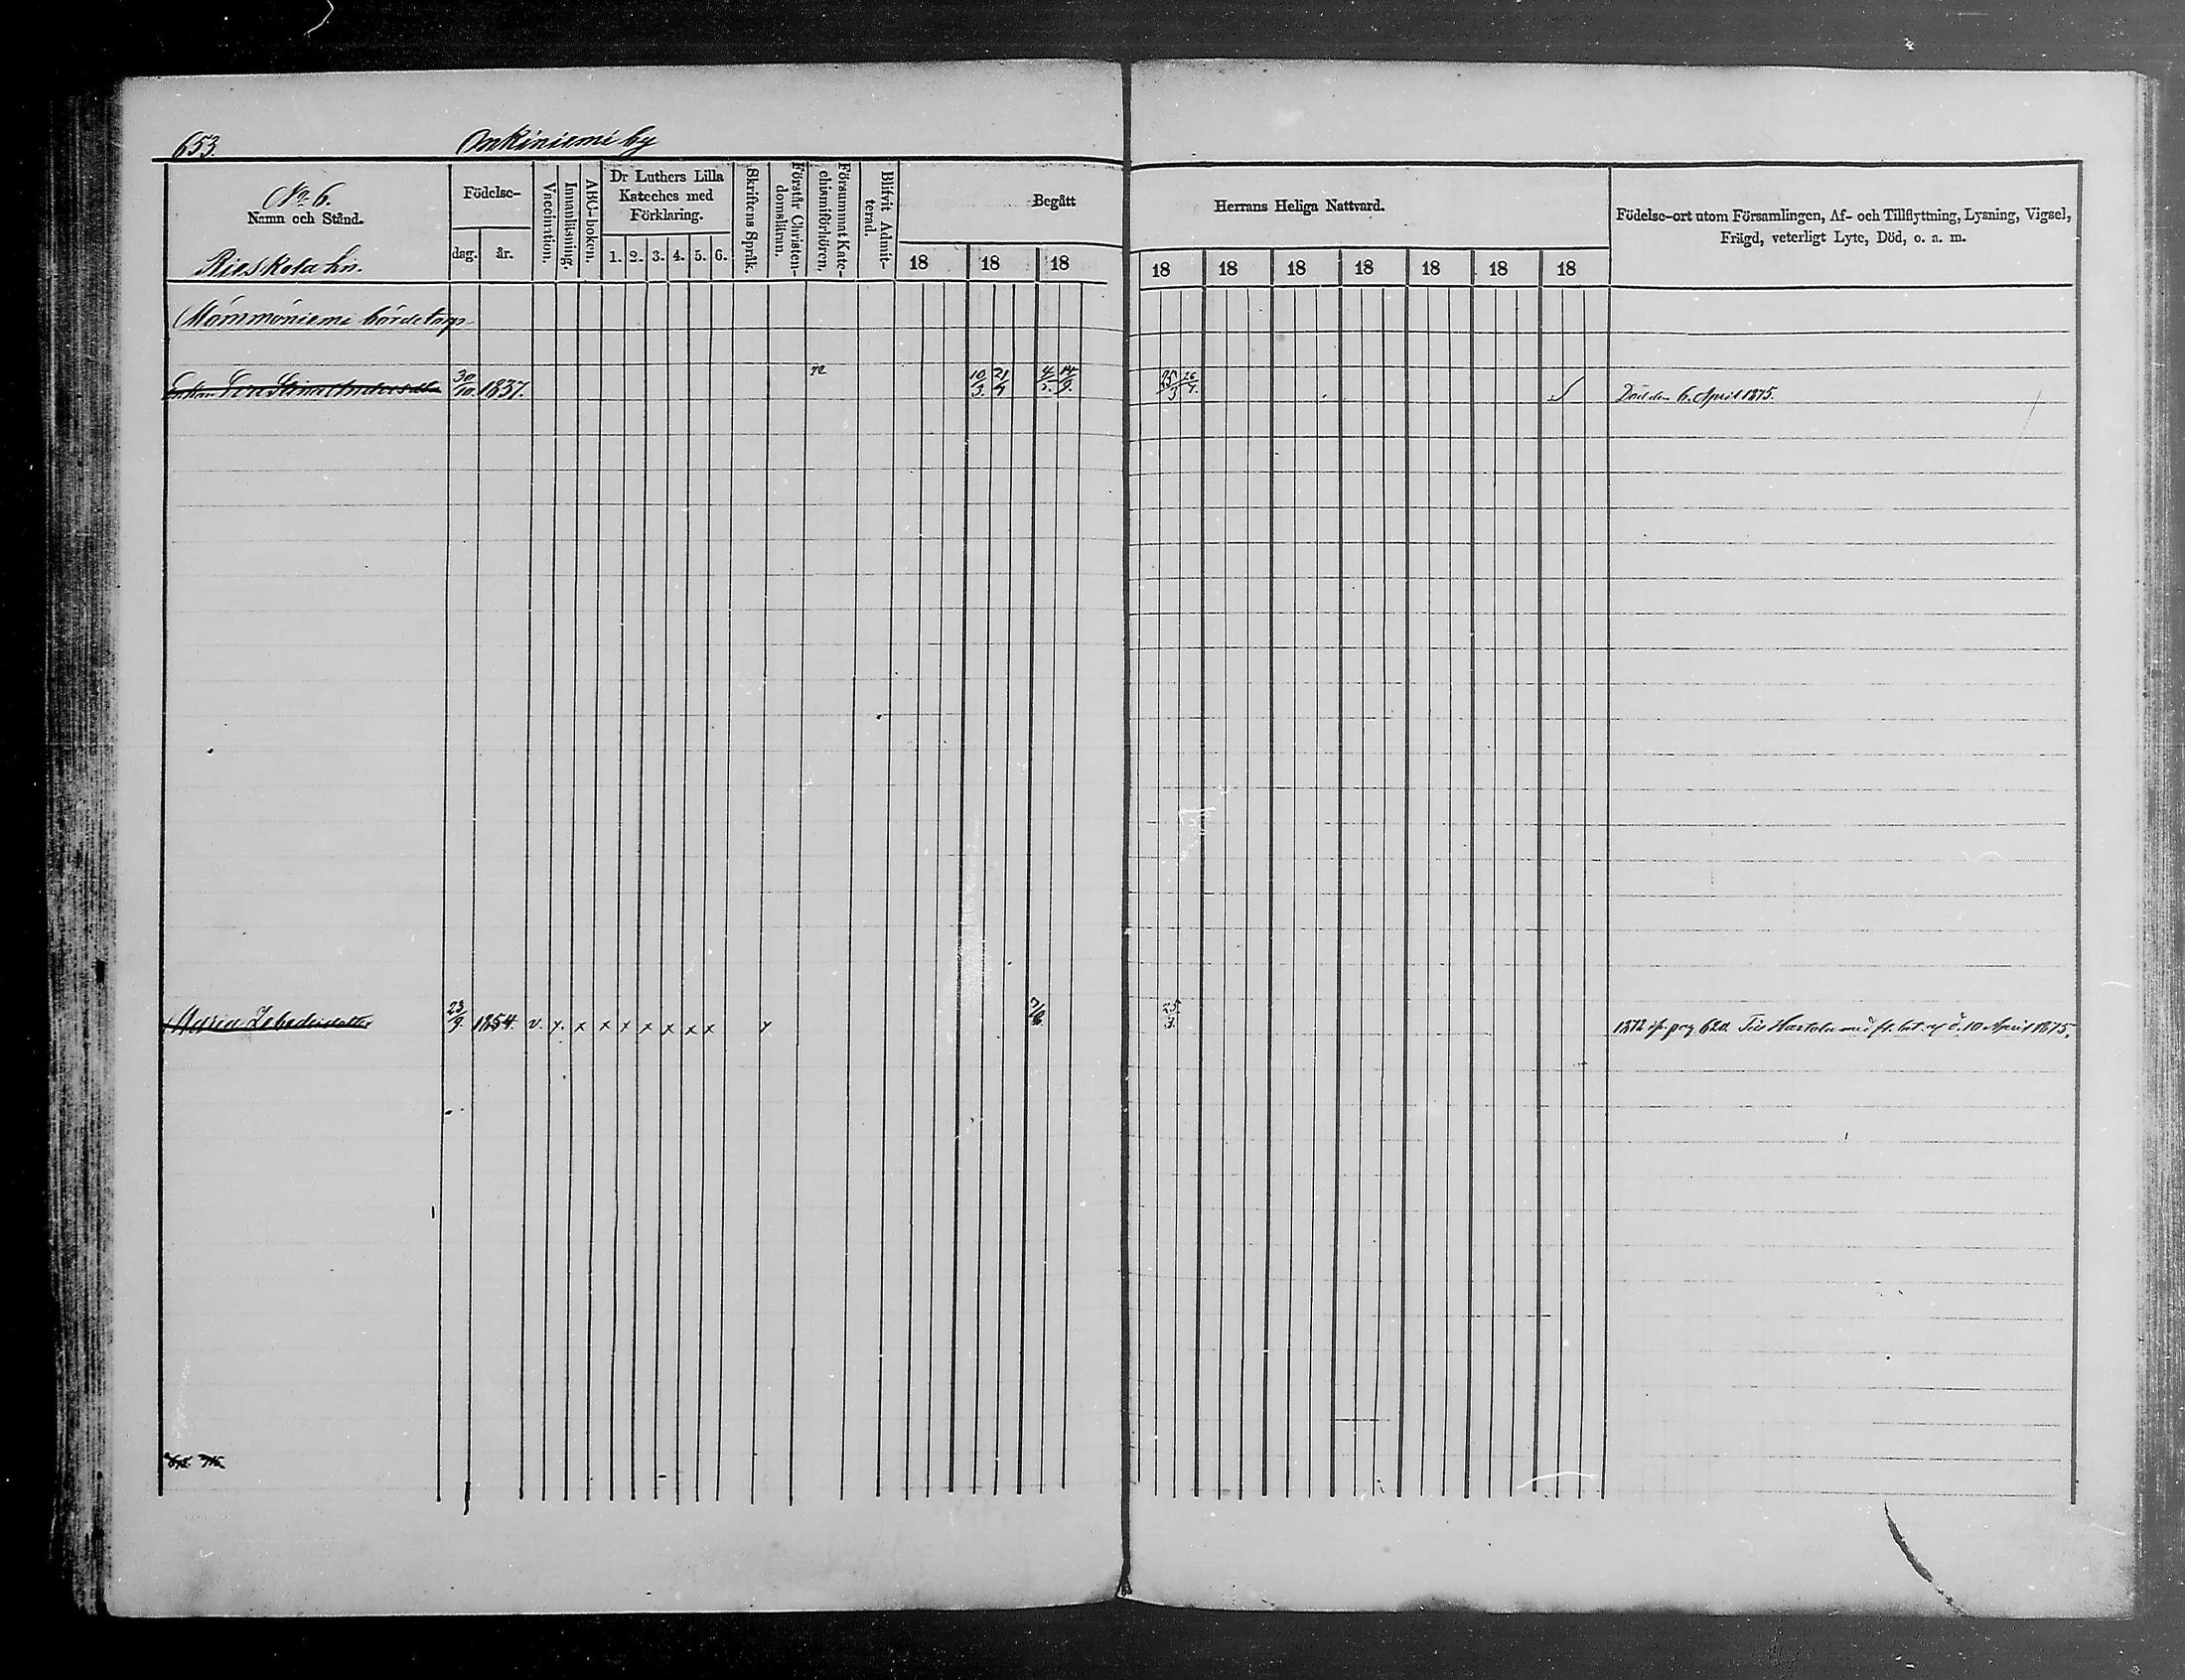 653.
Onkiniemi by
No 6.
Namn och Stånd.
Rieskola hn.
Födelse-
dag. år.
Vaccination.
Innanläsning.
ABC-boken.
Dr Luthers Lilla
Kateches med
Förklaring.
1. 2. 3. 4. 5. 6.
Skriftens Språk.
Förstår Christen-
domslämn.
Försummat Kate-
chismiförhören.
Blifvit Admit-
terad.
Begått
18 18 18
Herrans Heliga Nattvard.
18 18 18 18 18 18 18
Födelse-ort utom Församlingen, Af- och Tillflyttning, Lysning, Vigsel,
Frägd, veterligt Lyte, Död, o. a. m.
Mömmöniemi bördetorp
Enkan Stina Andersdr 30/10. 1837. 10/3. 21/4 4/2. 14/9. 25/3 26/7. Död den 6. April 1875.
Maria Zebedeidotter 23/9. 1854. v. x. x x x x x x x x 7/6. 25/3. 1872 ifr. pag 620. Till Hartola med fl. bet. af d. 10 April 1875.